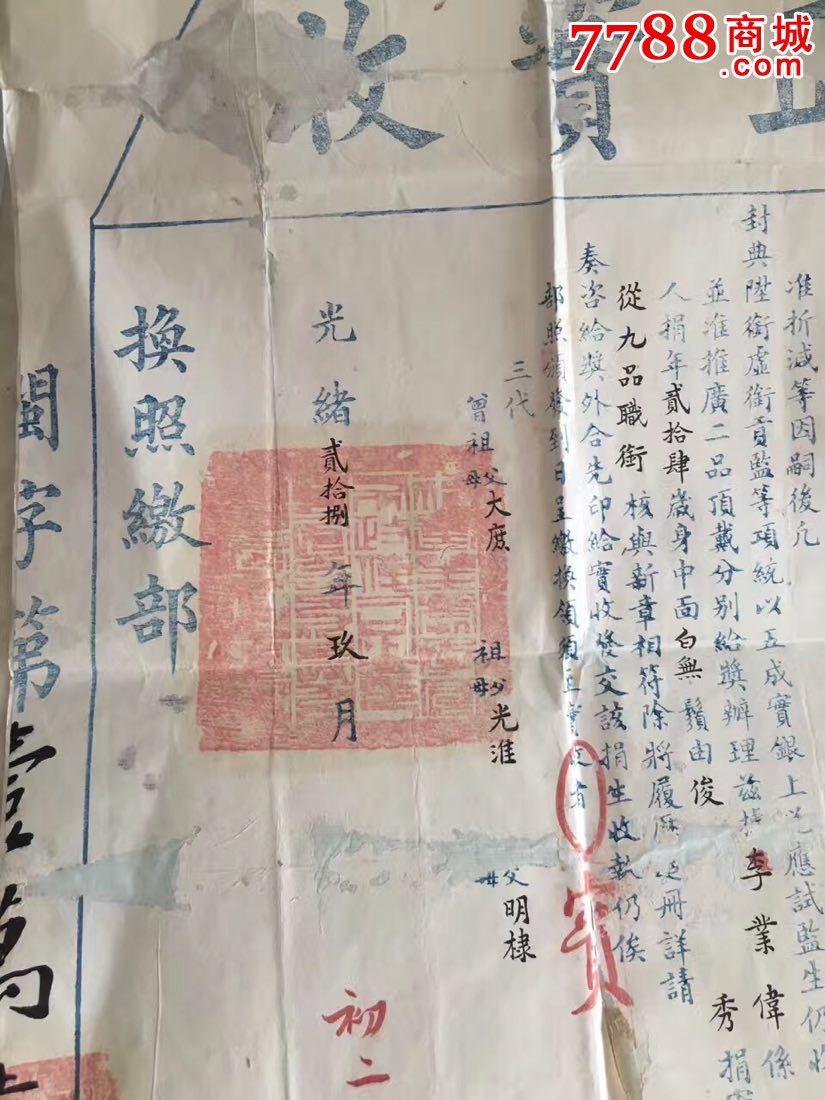 7788商城
.com
實收
准折減等因嗣後凡
封典陞銜虛銜貢監等項統以五成實銀上兌應試監生仍
並准推廣二品頂戴分別給獎辦理茲據李業偉係
人捐年貳拾肆歲身中面白無鬚由俊秀捐
從九品職銜核與新章相符除將履歷造冊詳請
奏咨給獎外合先印給實收發交該捐生收執仍俟
部照頒發到日呈繳換領須至實收者
實
三代
曾祖父母大庶
祖父母光淮
父母明棣
光緒貳拾捌年玖月
初二
換照繳部
閩字第壹萬